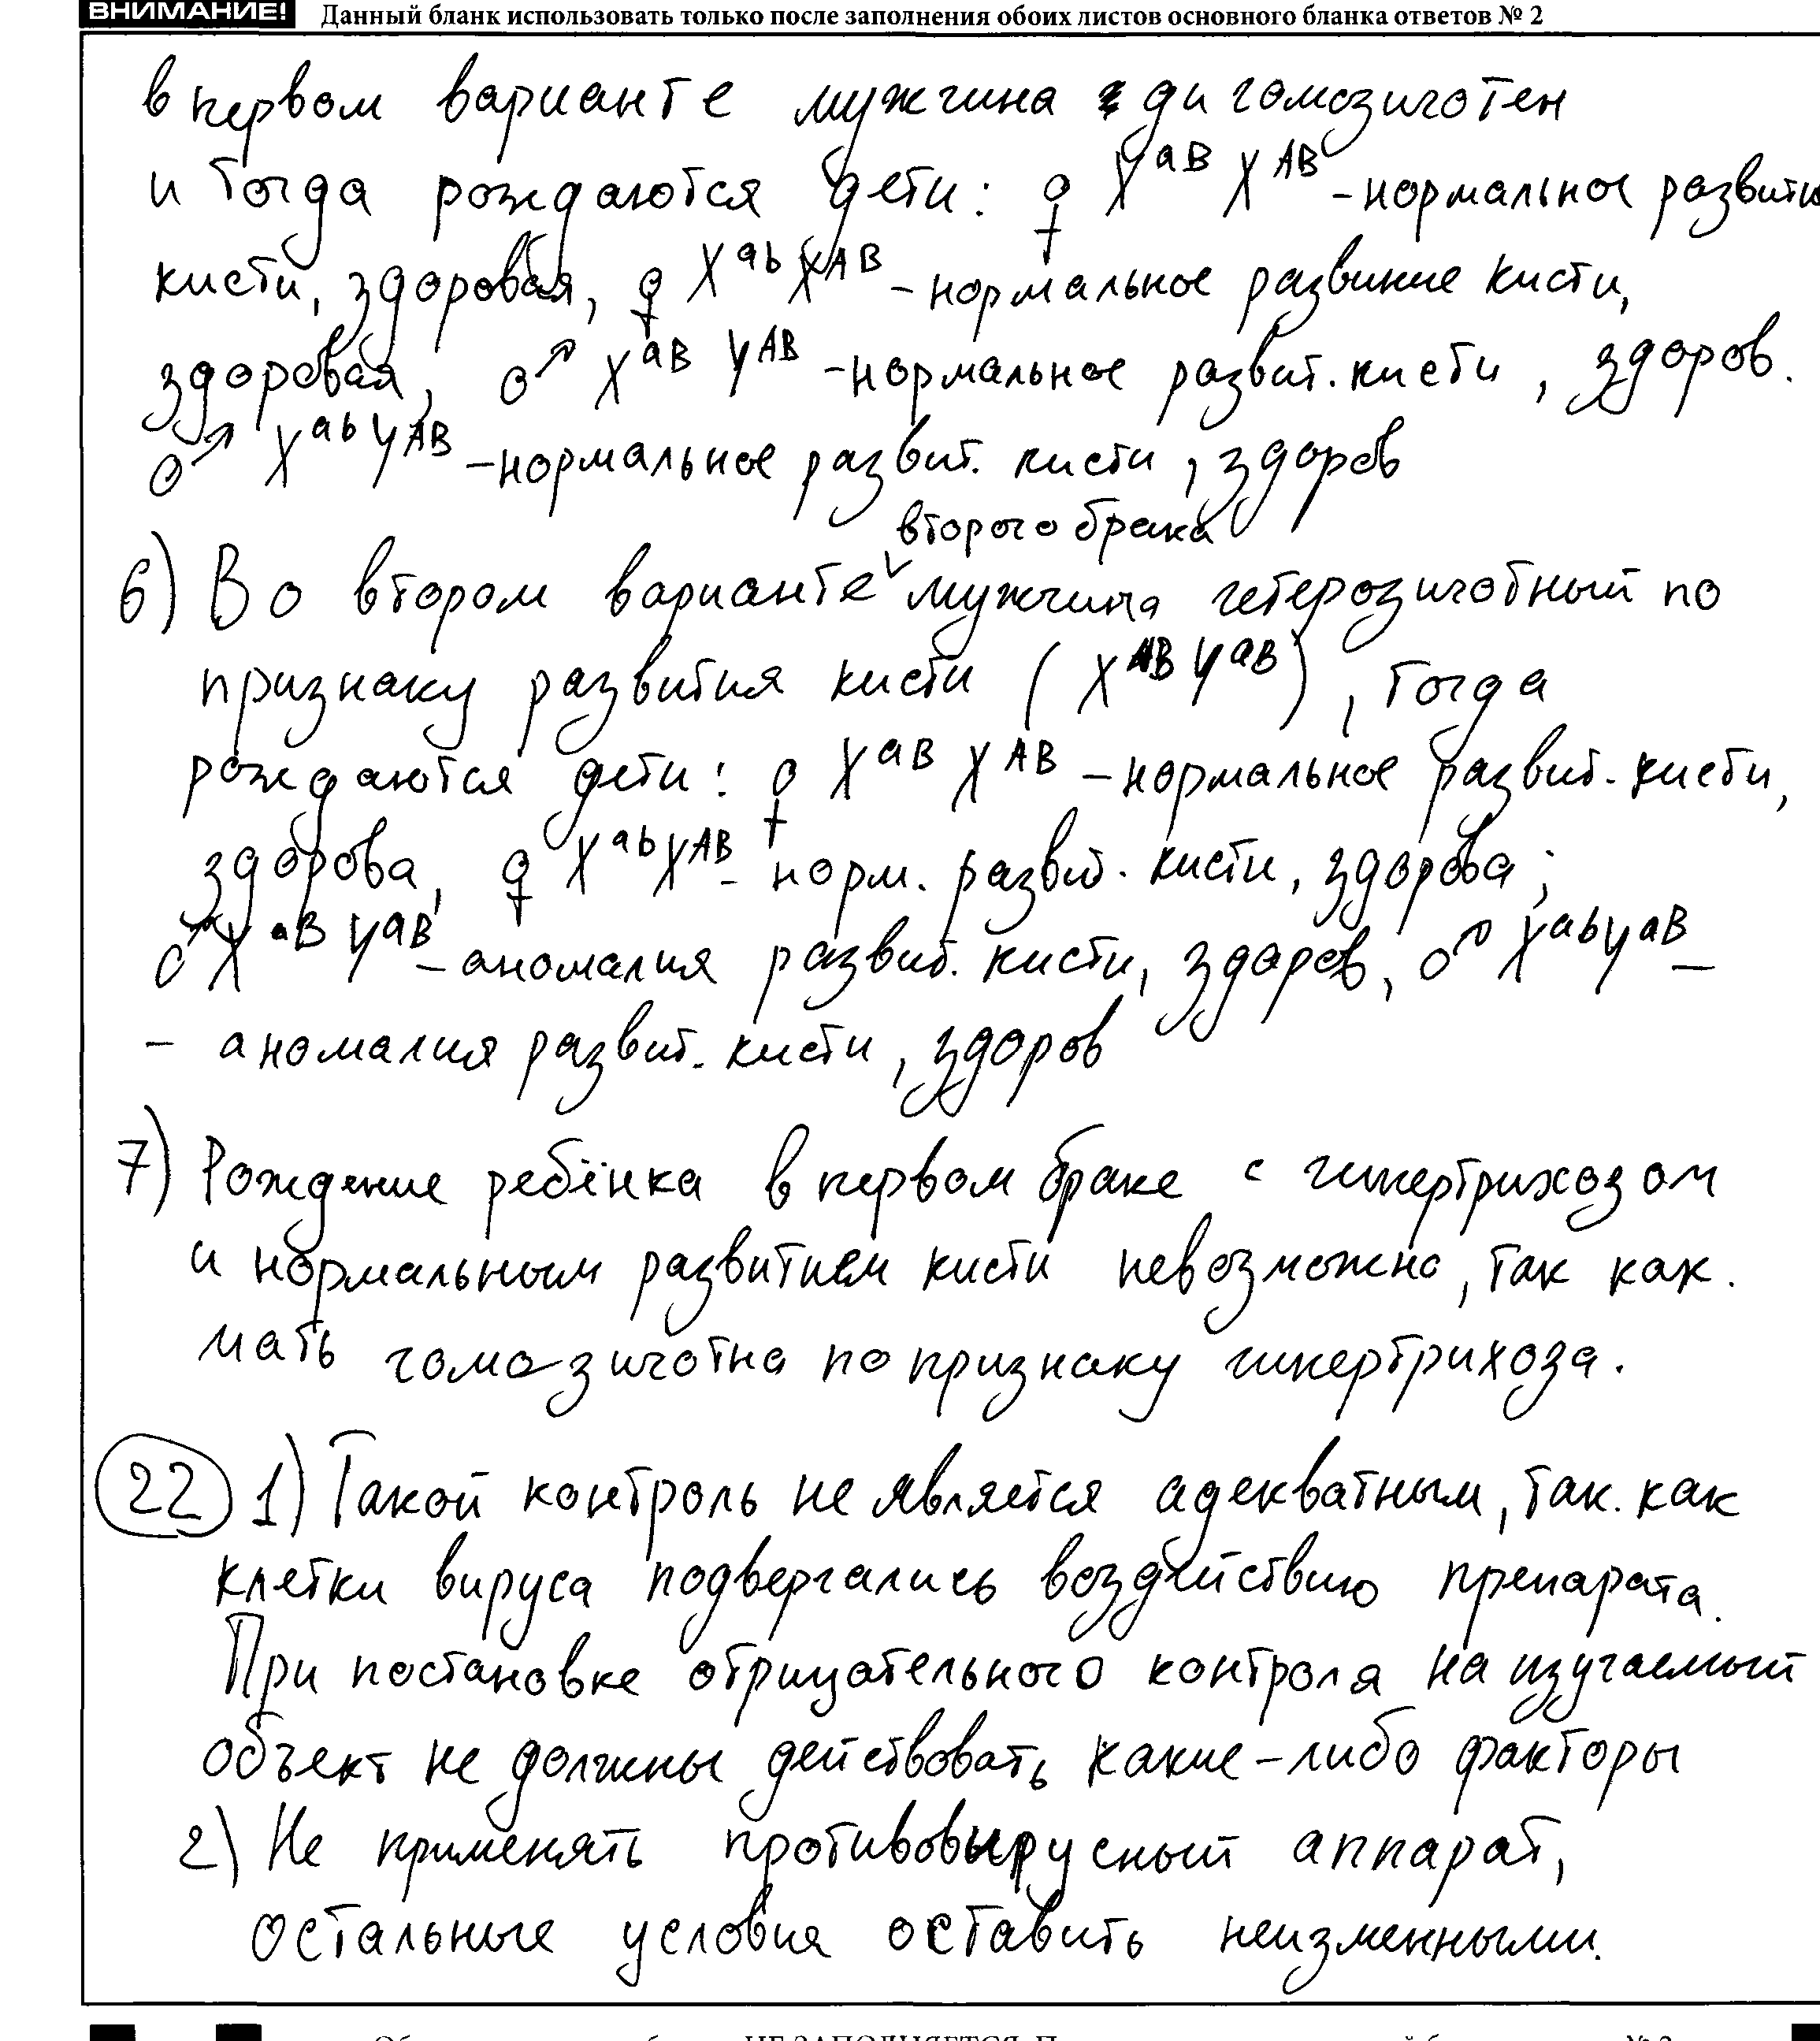 ВНИМАНИЕ! Данный бланк использовать только после заполнения обоих листов основного бланка ответов № 2
в первом варианте мужчина дигомозиготен
и тогда рождаются дети: ♀ X^aB X^AB - нормальное развити
кисти, здоровая, ♀ X^ab X^AB - нормальное развитие кисти,
здоровая, ♂ X^aB Y^AB - нормальное развит. кисти, здоров.
♂ X^ab Y^AB - нормальное развит. кисти, здоров
второго брака
6) Во втором варианте ∨ мужчина гетерозиготный по
признаку развития кисти (X^AB Y^aB), тогда
рождаются дети: ♀ X^aB X^AB - нормальное развит. кисти,
здорова, ♀ X^ab X^AB - норм. развит. кисти, здорова;
♂ X^aB Y^aB - аномалия развит. кисти, здоров, ♂ X^ab Y^aB -
- аномалия развит. кисти, здоров
7) Рождение ребёнка в первом браке с гипертрихозом
и нормальным развитием кисти невозможно, так как.
мать гомозиготна по признаку гипертрихоза.
22 1) Такой контроль не является адекватным, так. как
клетки вируса подвергались воздействию препарата.
При постановке отрицательного контроля на изучаемый
объект не должны действовать какие-либо факторы
2) Не применять противовирусный аппарат,
остальные условия оставить неизменными.